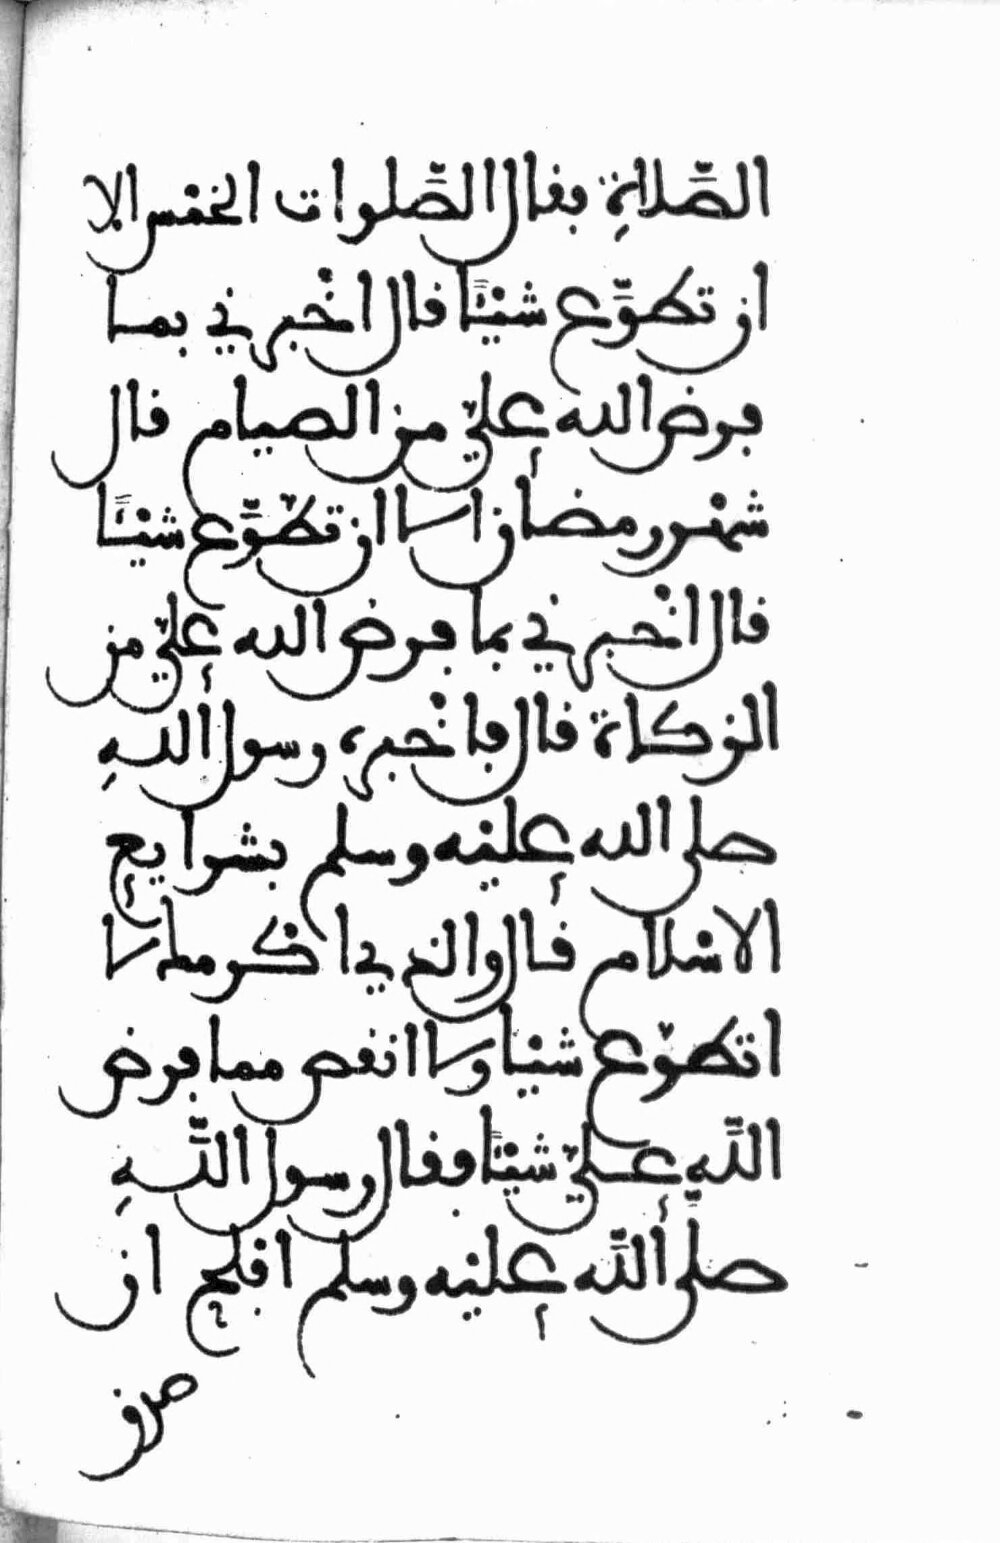 الصّلاةِ فقال الصّلوات الخمْس الا
ان تطوّع شيْـًٔا قال اخْبرني بما
فرض الله علي من الصيام قال
شهْر رمضان الا ان تطوّع شيْـًٔا
قال اخْبرني بما فرض الله علي من
الزكاة قال فاخْبره رسول اللهِ
صلى الله عليْه وسلم بشرايع
الاسْلام قال والذي اكْرمك لا
اتطوّع شيْا ولا انقص مما فرض
اللّه علي شيْـًٔا فقال رسول اللّهِ
صلّى اللّه عليْه وسلم افلح ان
صدق